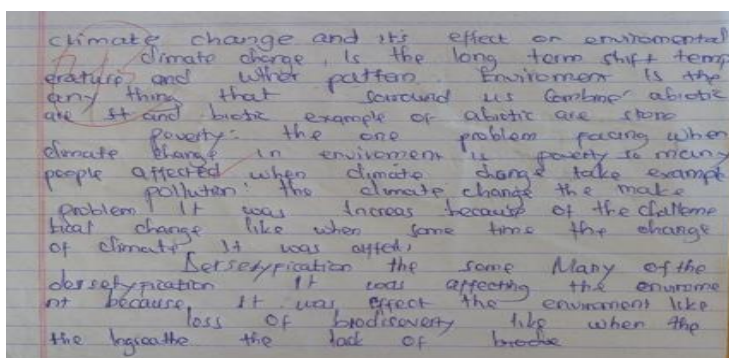 climate change and it's effect on enviromental
climate change, Is the long term shift temp
erature and pattan. Enviroment is the
any thing that sorround us Combine abiotic
are and biotic example of abiotic are stone
poverty: the one problem pacing when
climate change in enviroment is poverty so many
people affected when climate change take exampt
pollution: the climate change the make
problem It was Increas because of the
tical change like when some time the change
of climate It was affed,
Dersetypication the some Many of the
dersetypication It was affecting the envirome
nt because, It was effect the enviroment like
loss of biodiscoverty like when the
the the lack of